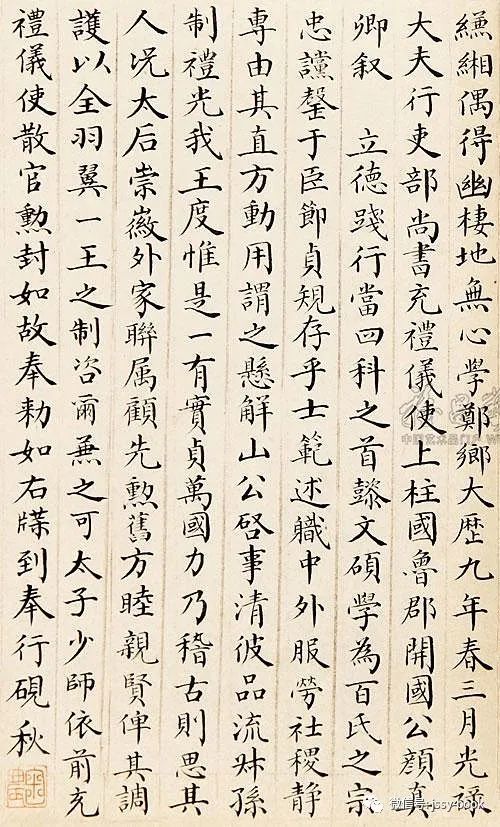 縹緗偶得幽棲地無心學鄭鄉大歷九年春三月光祿
大夫行吏部尚書充禮儀使上柱國魯郡開國公顏真
卿叙 立德踐行當四科之首懿文碩學為百氏之宗
忠讜罄于臣節貞規存乎士範述職中外服勞社稷靜
專由其直方動用謂之懸解山公啓事清彼品流叔孫
制禮光我王度惟是一有實貞萬國力乃稽古則思其
人況太后崇徽外家聯属顧先勲舊方睦親賢俾其調
護以全羽翼一王之制咨爾兼之可太子少師依前充
禮儀使散官勲封如故奉勑如右牒到奉行硯秋
微信号: jssy-book